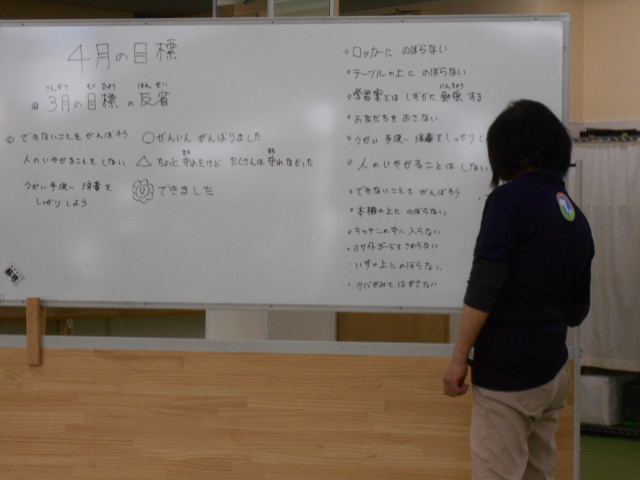 4月の目標
さんがつ もくひょう はんせい
◎ 3月の目標の反省
◎ できないことをがんばろう ○ ぜんいん がんばりました
人のいやがることをしない △ ちょっと守れたけど たくさんは守れなかった
うがい 手洗い 消毒を しっかりしよう できました
○ ロッカーに のぼらない
○ テーブルの上に のぼらない
べんきょう
○ 学習室では しずかに 勉強する
○ お友だちを おさない
○ うがい 手洗い 消毒をしっかり
○ 人のいやがることは しない
・できないことを がんばろう
・本棚の上に のぼらない
・キッチンの中に 入らない
・ホワイトボードをさわらない
・いすの上にのぼらない
・かべがみを はがさない